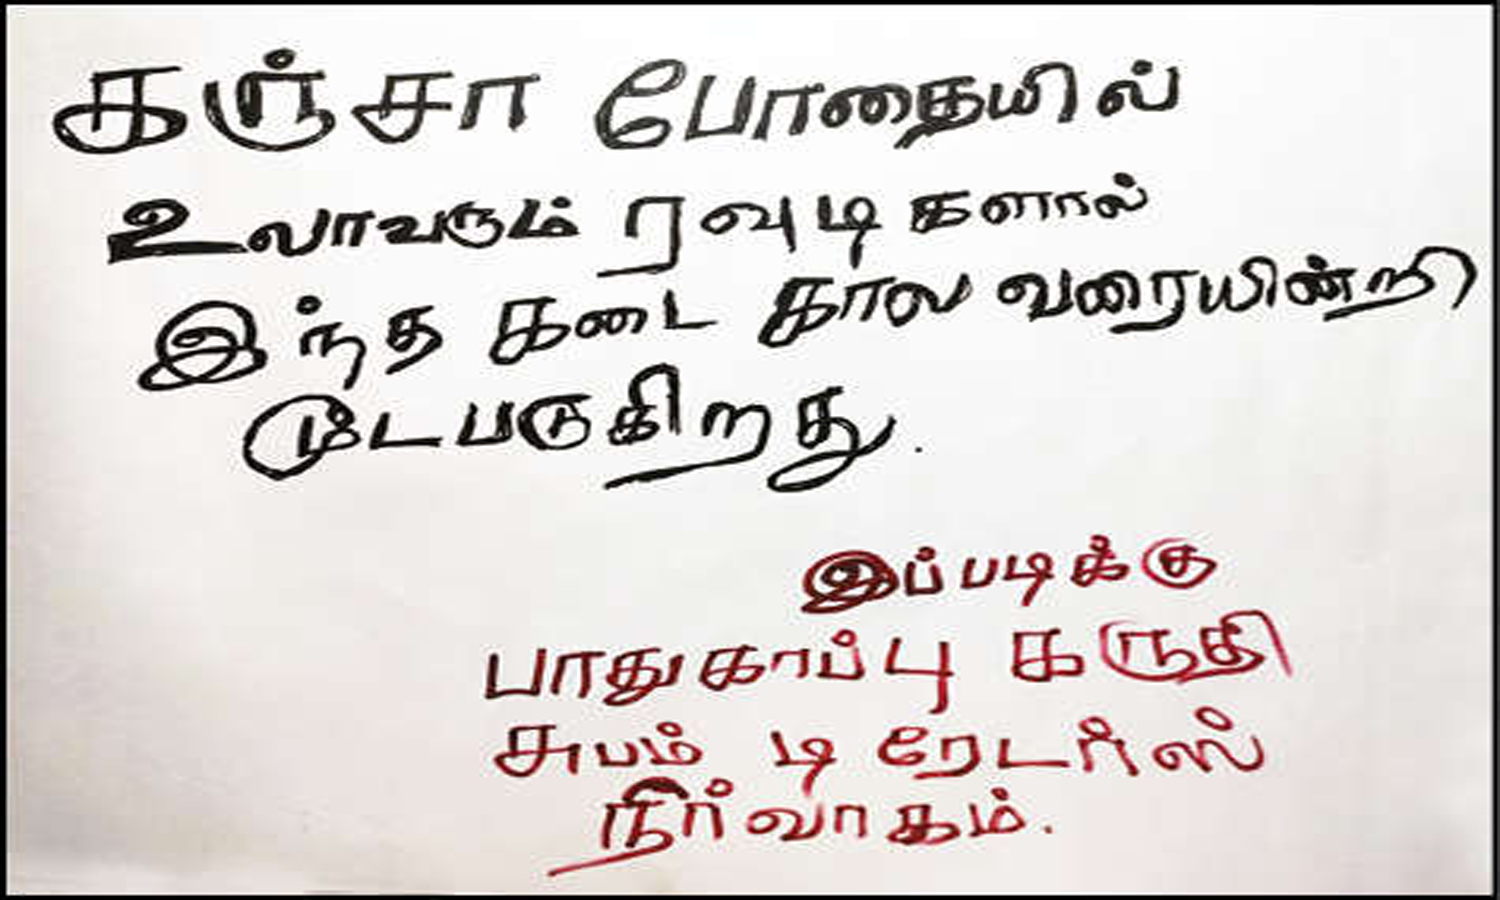 கஞ்சா போதையில்
உலாவரும் ரவுடிகளால்
இந்த கடை கால வரையின்றி
மூடபடுகிறது.
இப்படிக்கு
பாதுகாப்பு கருதி
சுபம் டிரேடர்ஸ்
நிர்வாகம்.